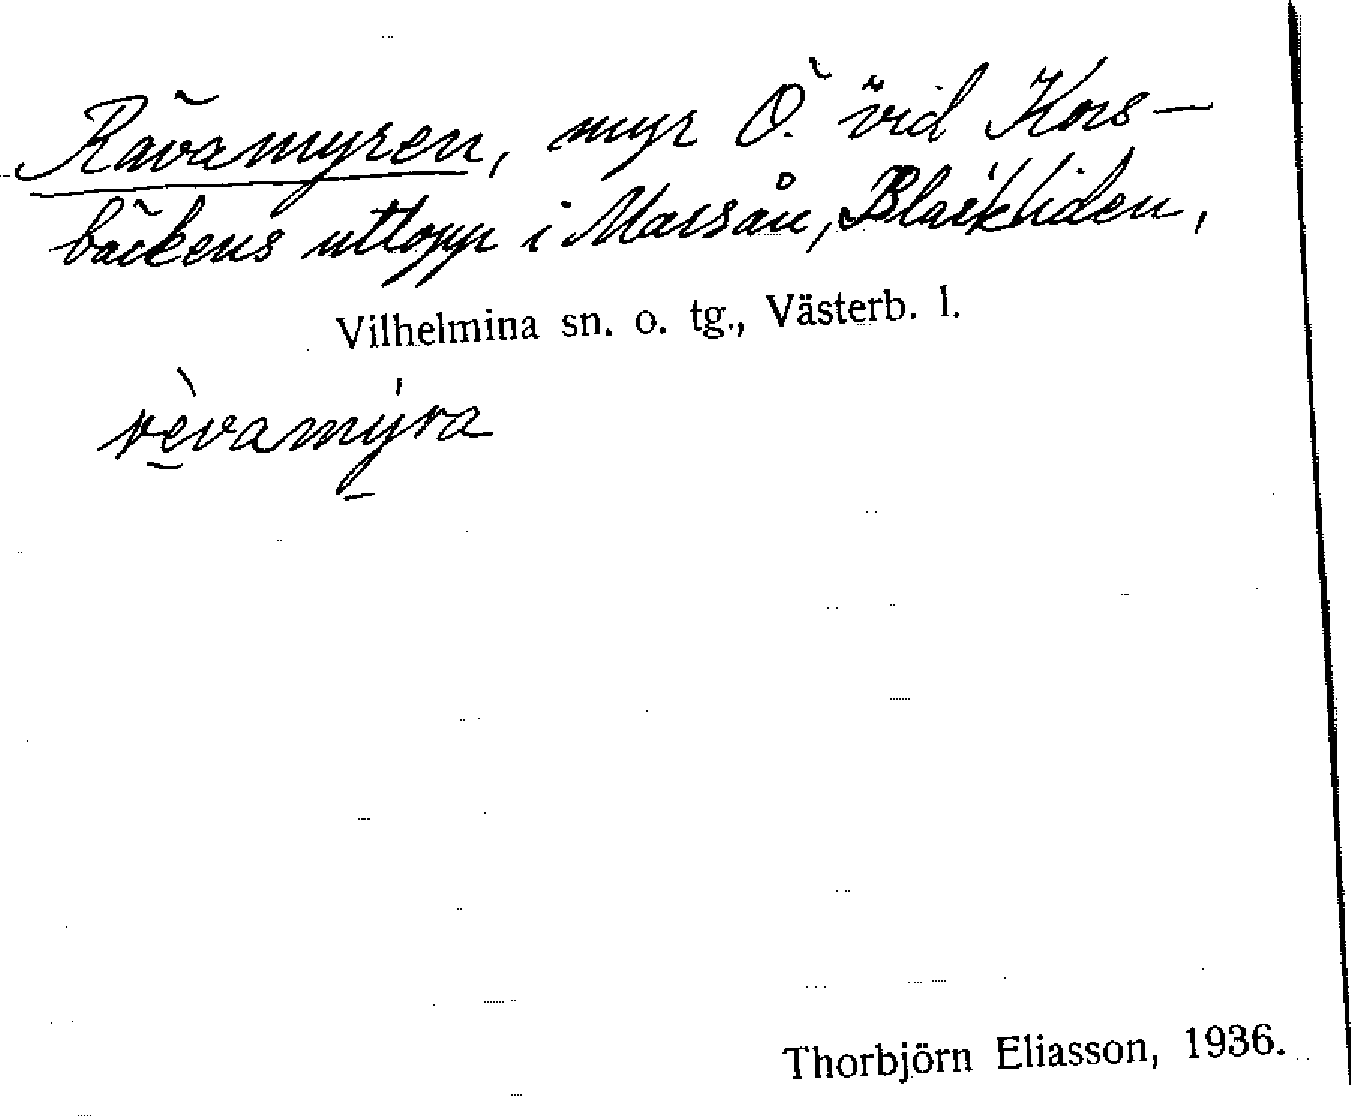 Rävamyren, myr Ö. vid Kors-
bäckens utlopp i Marsån, Blaikliden,
Vilhelmina sn. o. tg., Västerb. l.
rèvamýra
Thorbjörn Eliasson, 1936.